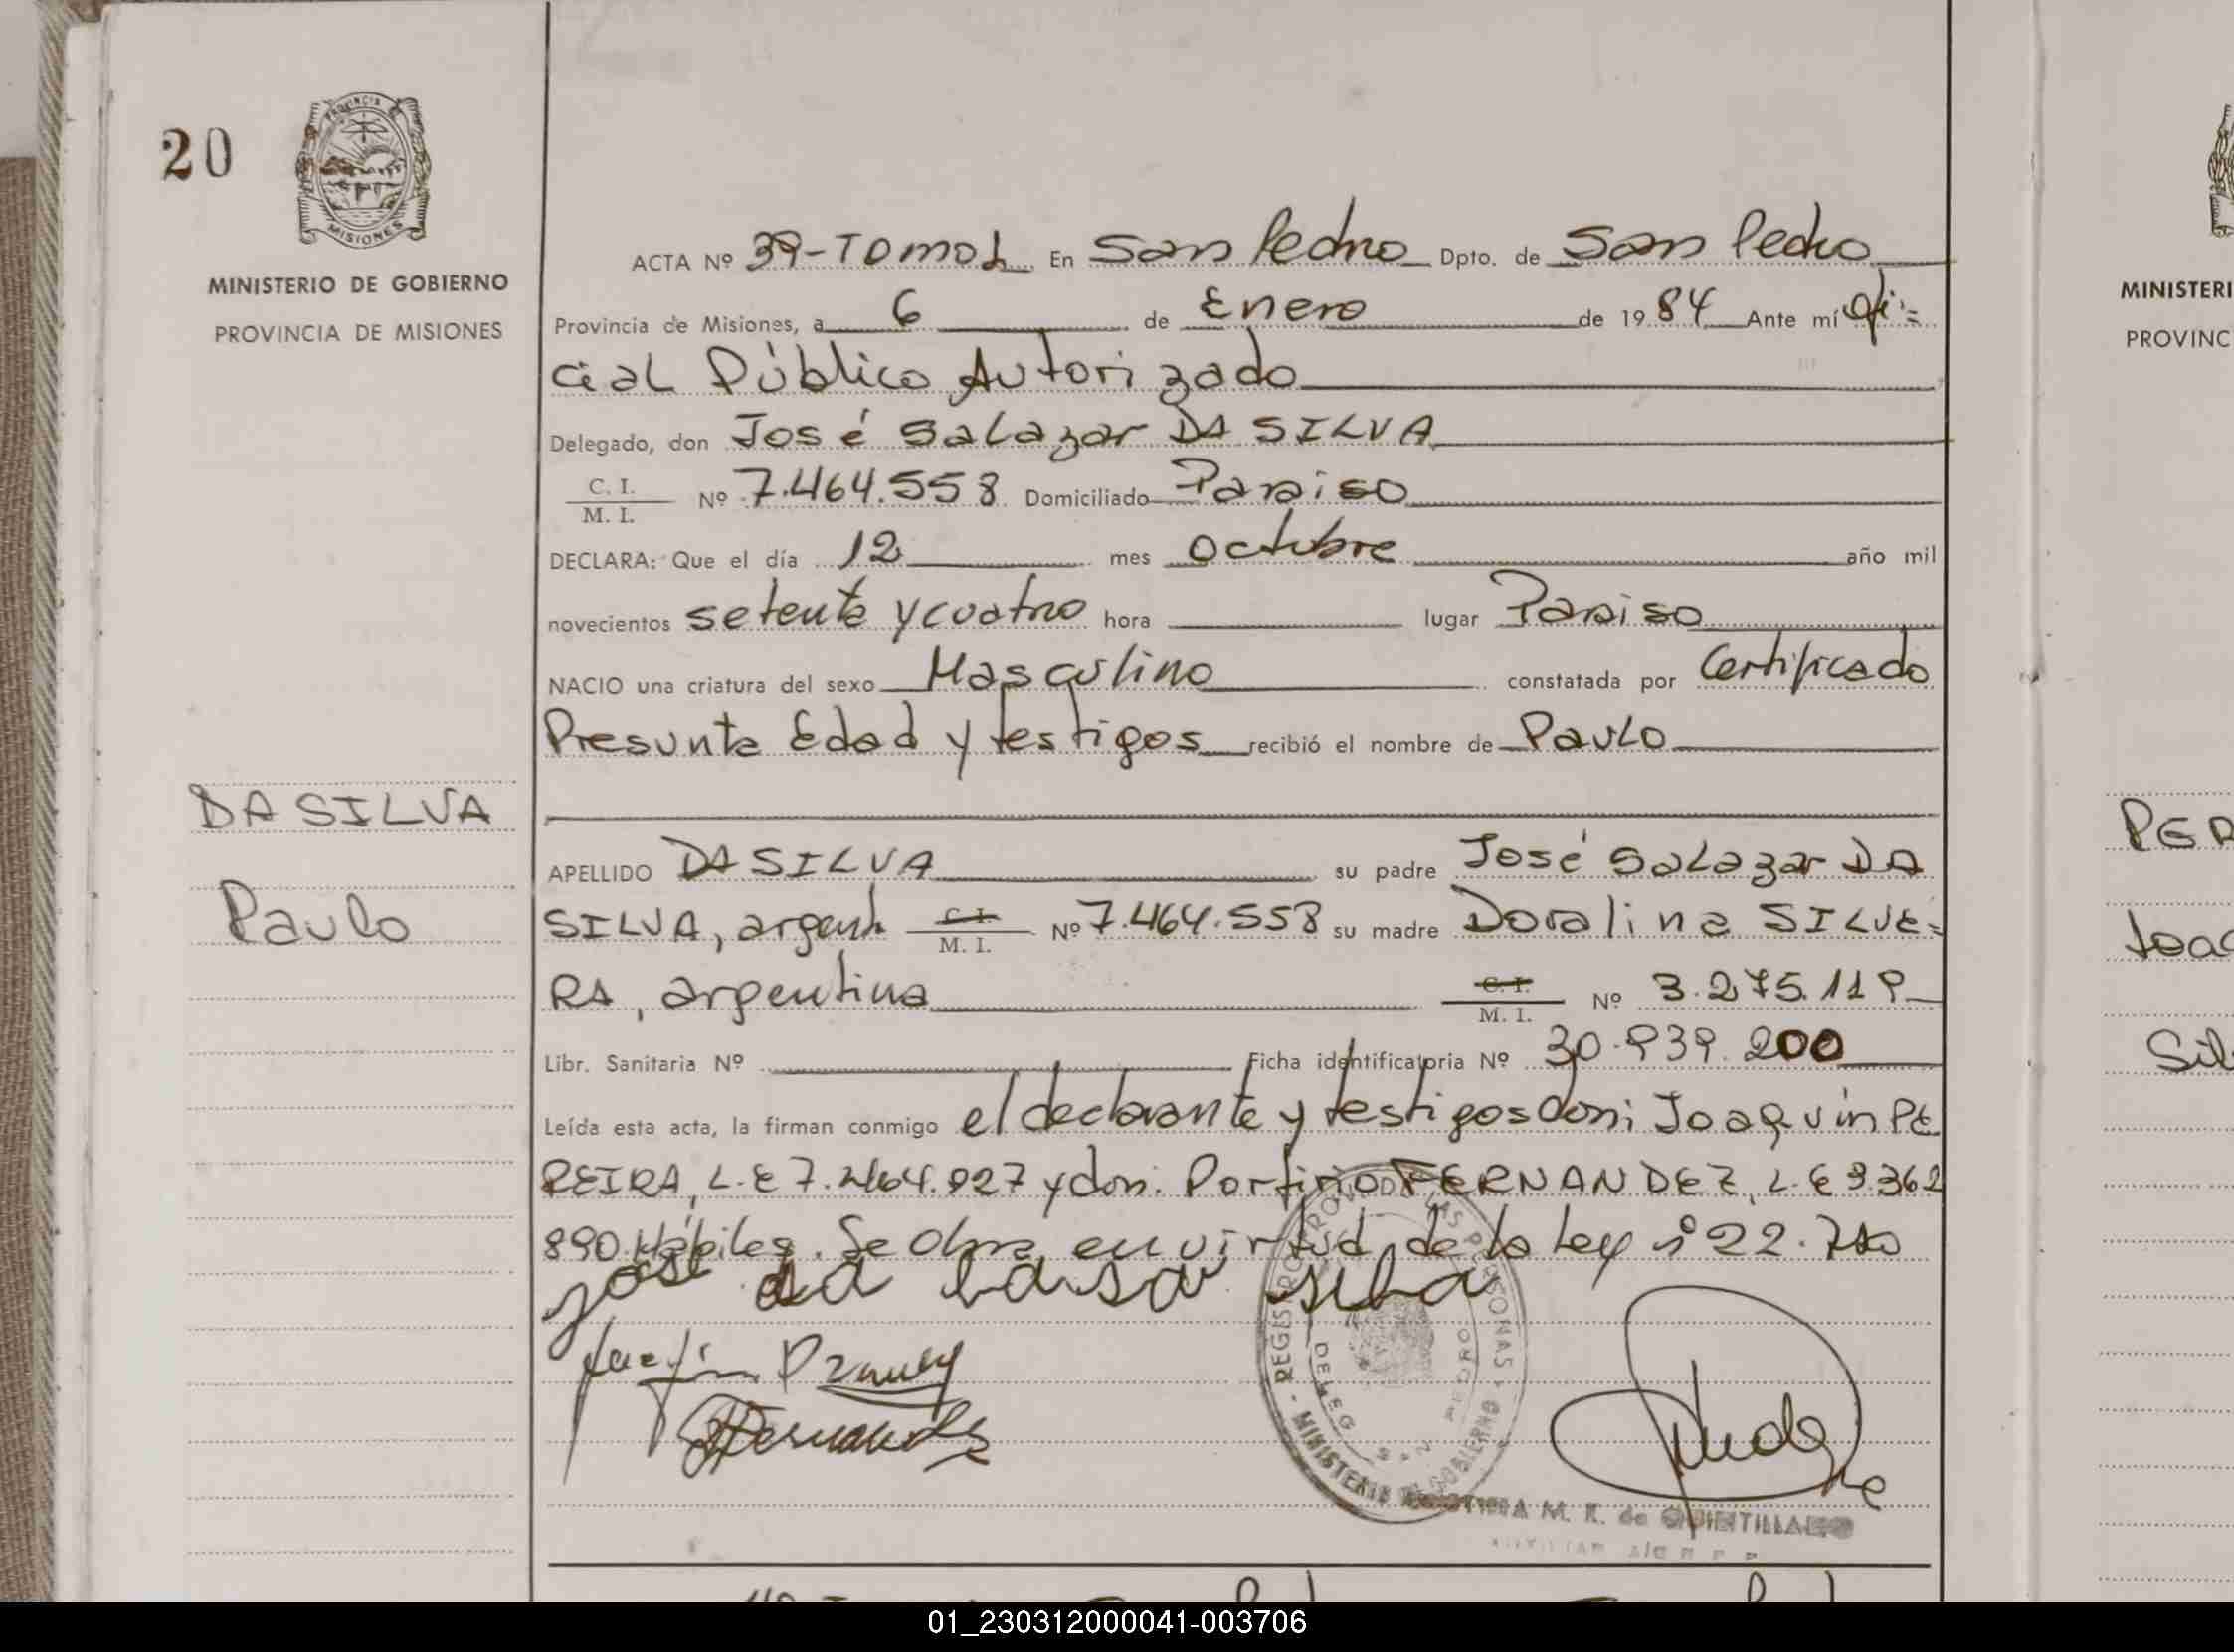 20
PROVINCIA
MISIONES
MINISTERIO DE GOBIERNO
PROVINCIA DE MISIONES
ACTA Nº 39-TOMO I En San Pedro Dpto. de San Pedro
Provincia de Misiones, a 6 de Enero de 1984 Ante mí Ofi=
cial Público Autorizado
Delegado, don José Salazar DA SILVA
C. I.
M. I.
Nº 7.464.558 Domiciliado Paraiso
DECLARA: Que el día 12 mes octubre año mil
novecientos setenta y cuatro hora lugar Paraiso
NACIO una criatura del sexo Masculino constatada por Certificado
Presunta Edad y testigos recibió el nombre de Paulo
DA SILVA
Paulo
APELLIDO DA SILVA su padre José Salazar DA
SILVA, argent. C. I. M. I. Nº 7.464.558 su madre Doralina SILVE=
RA, argentina C. I. M. I. Nº 3.275.119
Libr. Sanitaria Nº Ficha identificatoria Nº 30.939.200
Leída esta acta, la firman conmigo el declarante y testigos Don: Joaquín PE
REIRA, L.E 7.464.927 y don: Porfirio FERNANDEZ, L.E 3.362
890 Hábiles. Se obra en virtud de la Ley nº 22.
José da silba
Fernandez
REGISTRO PROV. DE LAS PERSONAS - MINISTERIO DE GOBIERNO
DELEG. SAN PEDRO
M. K. de QUINTILLANO
MINISTERI
PROVINC
PER
Joac
Sil
01_230312000041-003706